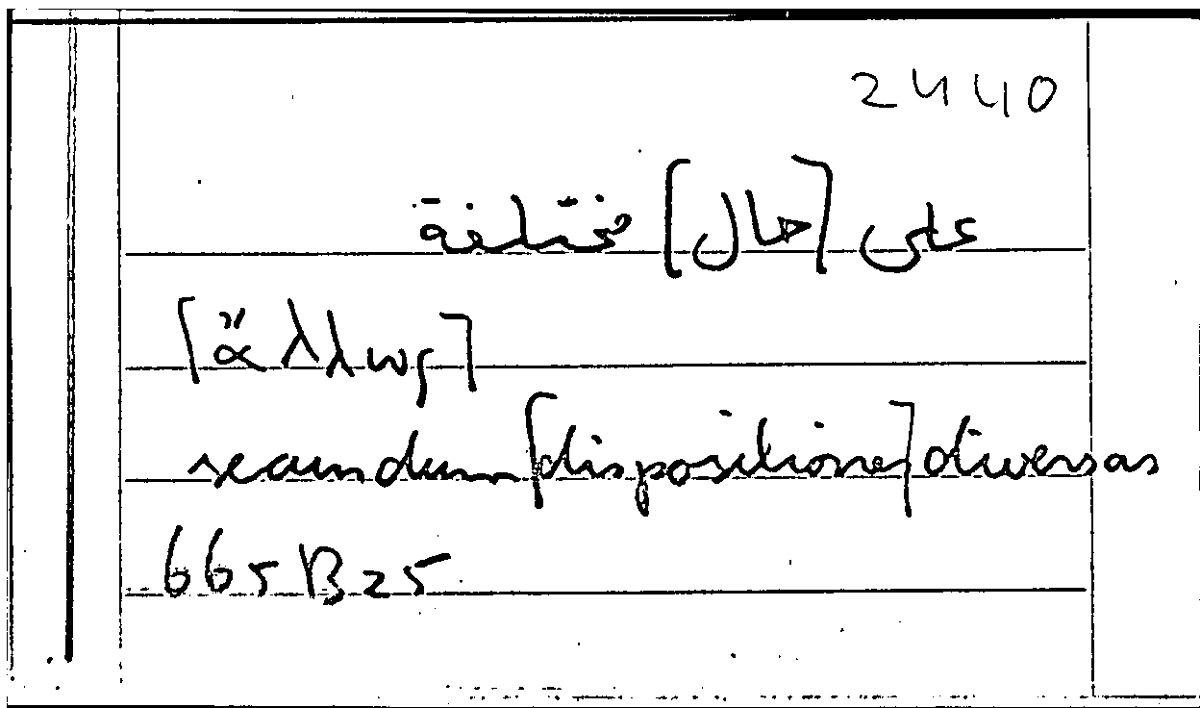 2440
على [حال] مختلفة
[ἄλλως]
secundum [dispositiones] diversas
665B25